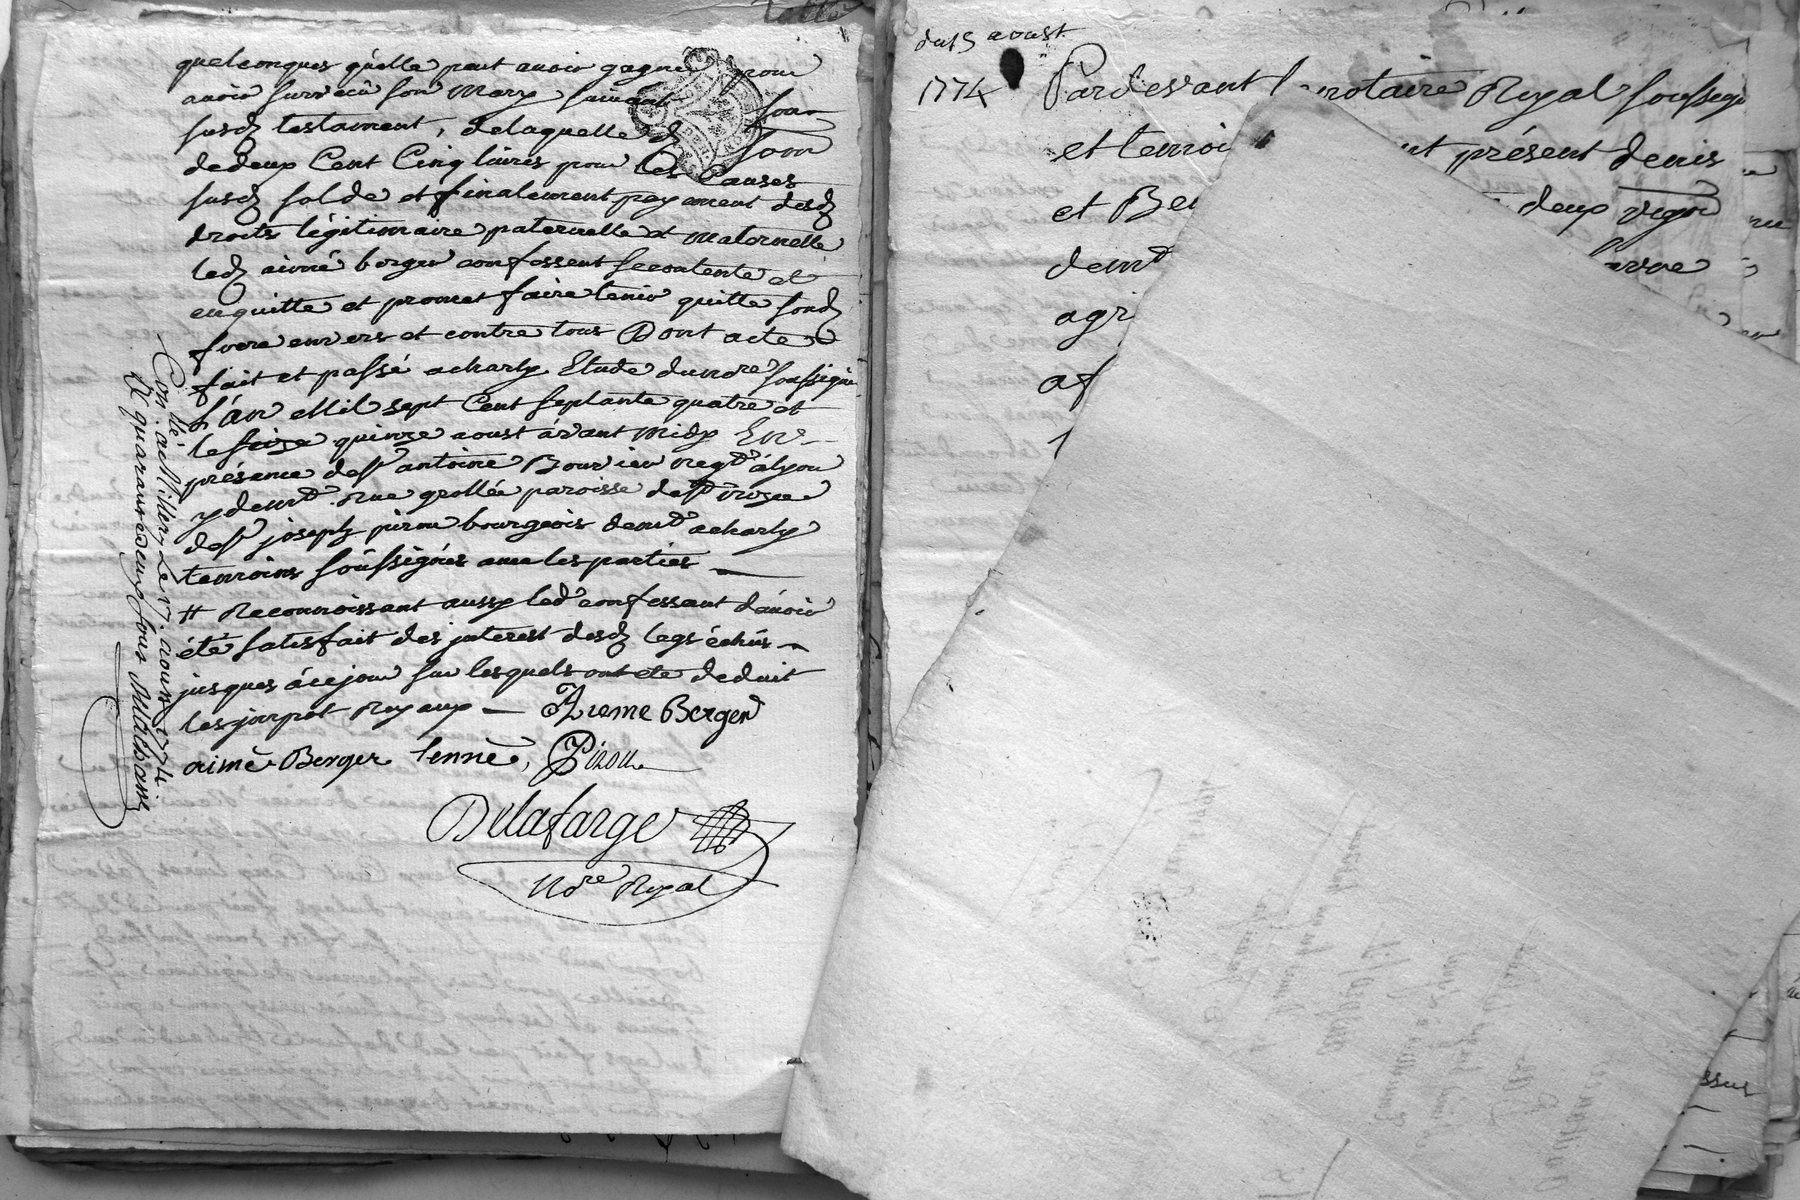 quelconques qu'elle peut avoir gagné pour
avoir survecu son Mary suivant son
susd testament, de laquelle d somme
de deux Cent Cinq livres pour les Causes
susd solde et finalement payement desd
droits légitimaire paternelle et maternelle
led aimé berger confessent se contente et
en quitte et promet faire tenir quitte sond
frere envers et contre tous Dont acte
fait et passé acharly Etude du nore soussigné
L'an Mil sept Cent septante quatre et
le seize quinze aoust avant midy En
présence de sr antoine Bouvier negt ályon
y demt rue grollée paroisse de st nizier
de sr joseph pirou bourgeois demt acharly
temoins soussignés avec les parties
# Reconnoissant aussy led confessant d'avoir
été satisfait des jnterest desd legs échus
jusques áce jour sur lesquels ont eté deduit
les jmpot Royaux Aieme Berger
aimé Berger lennè, Pirou
Delafarge
Nore Royal
Con.llé aMillery Le 17. aoust 1774
R quarante deux sous Malbane
du 15 aoust
1774 Pardevant le notaire Royal soussigné
et temoi nt présent denis
et Be deux
demt
agr
af